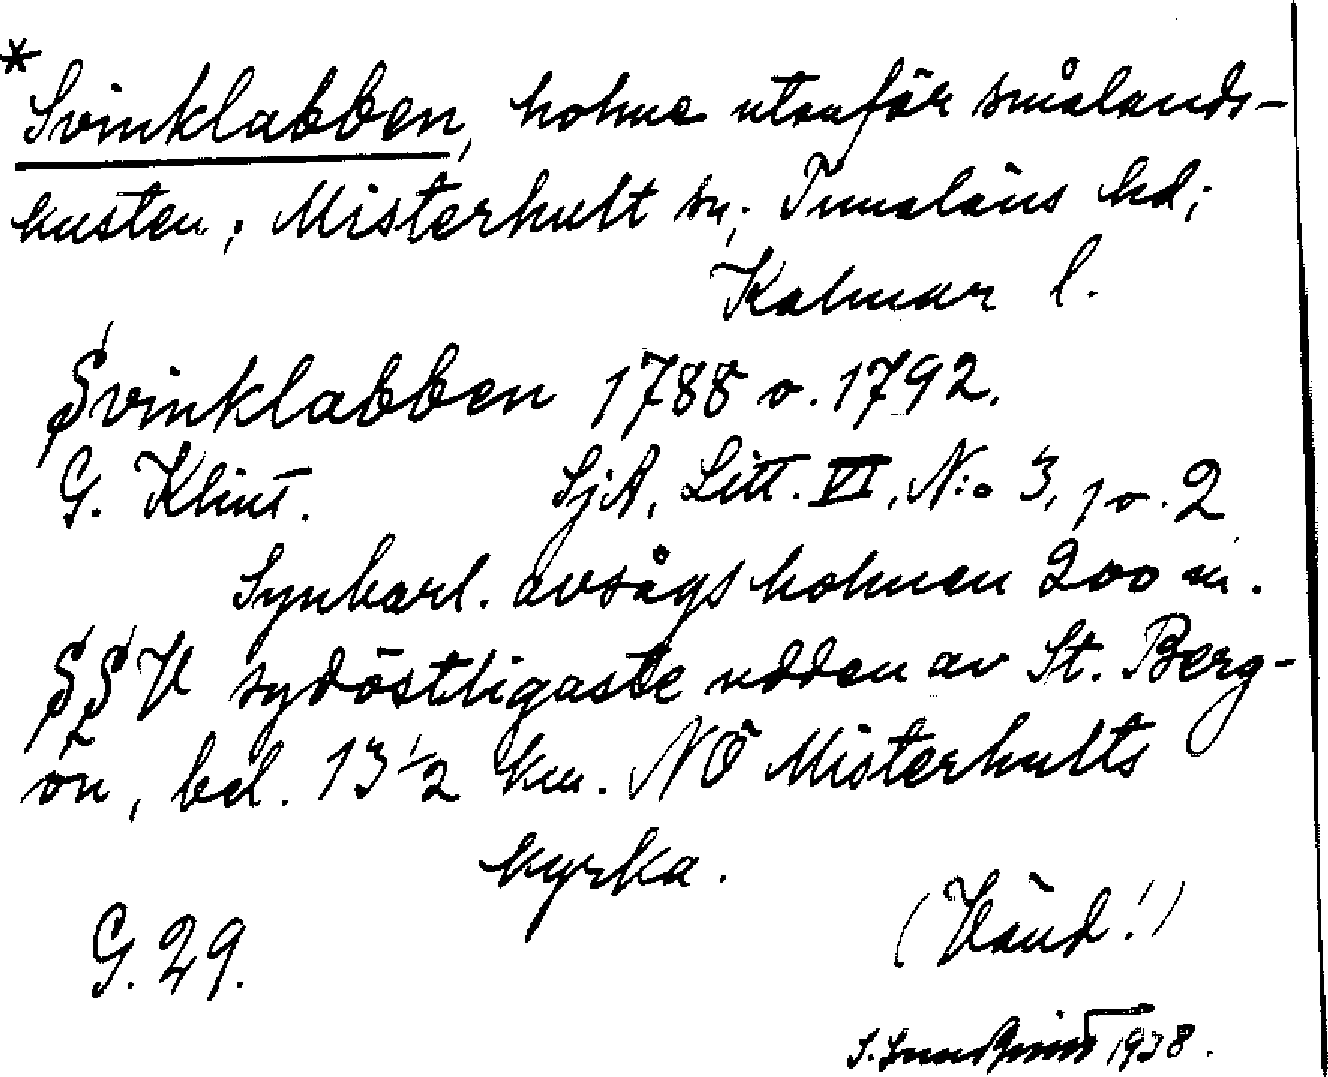 *Svinklabben, holme utanför smålands-
kusten; Misterhult sn; Tunaläns hd;
Kalmar l.
Svinklabben 1788 o. 1792.
G. Klint. SjA, Litt. VI, N:o 3, 1 o. 2
Synbarl. avsågs holmen 200 m.
SSV sydöstligaste udden av St. Berg-
ön, bel. 13 1/2 km. NÖ Misterhults
kyrka.
(Vänd!)
G. 29.
1938.